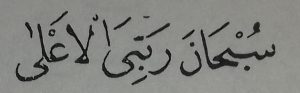 سُبْحَانَ رَبِّيَ الْاَعْلٰى